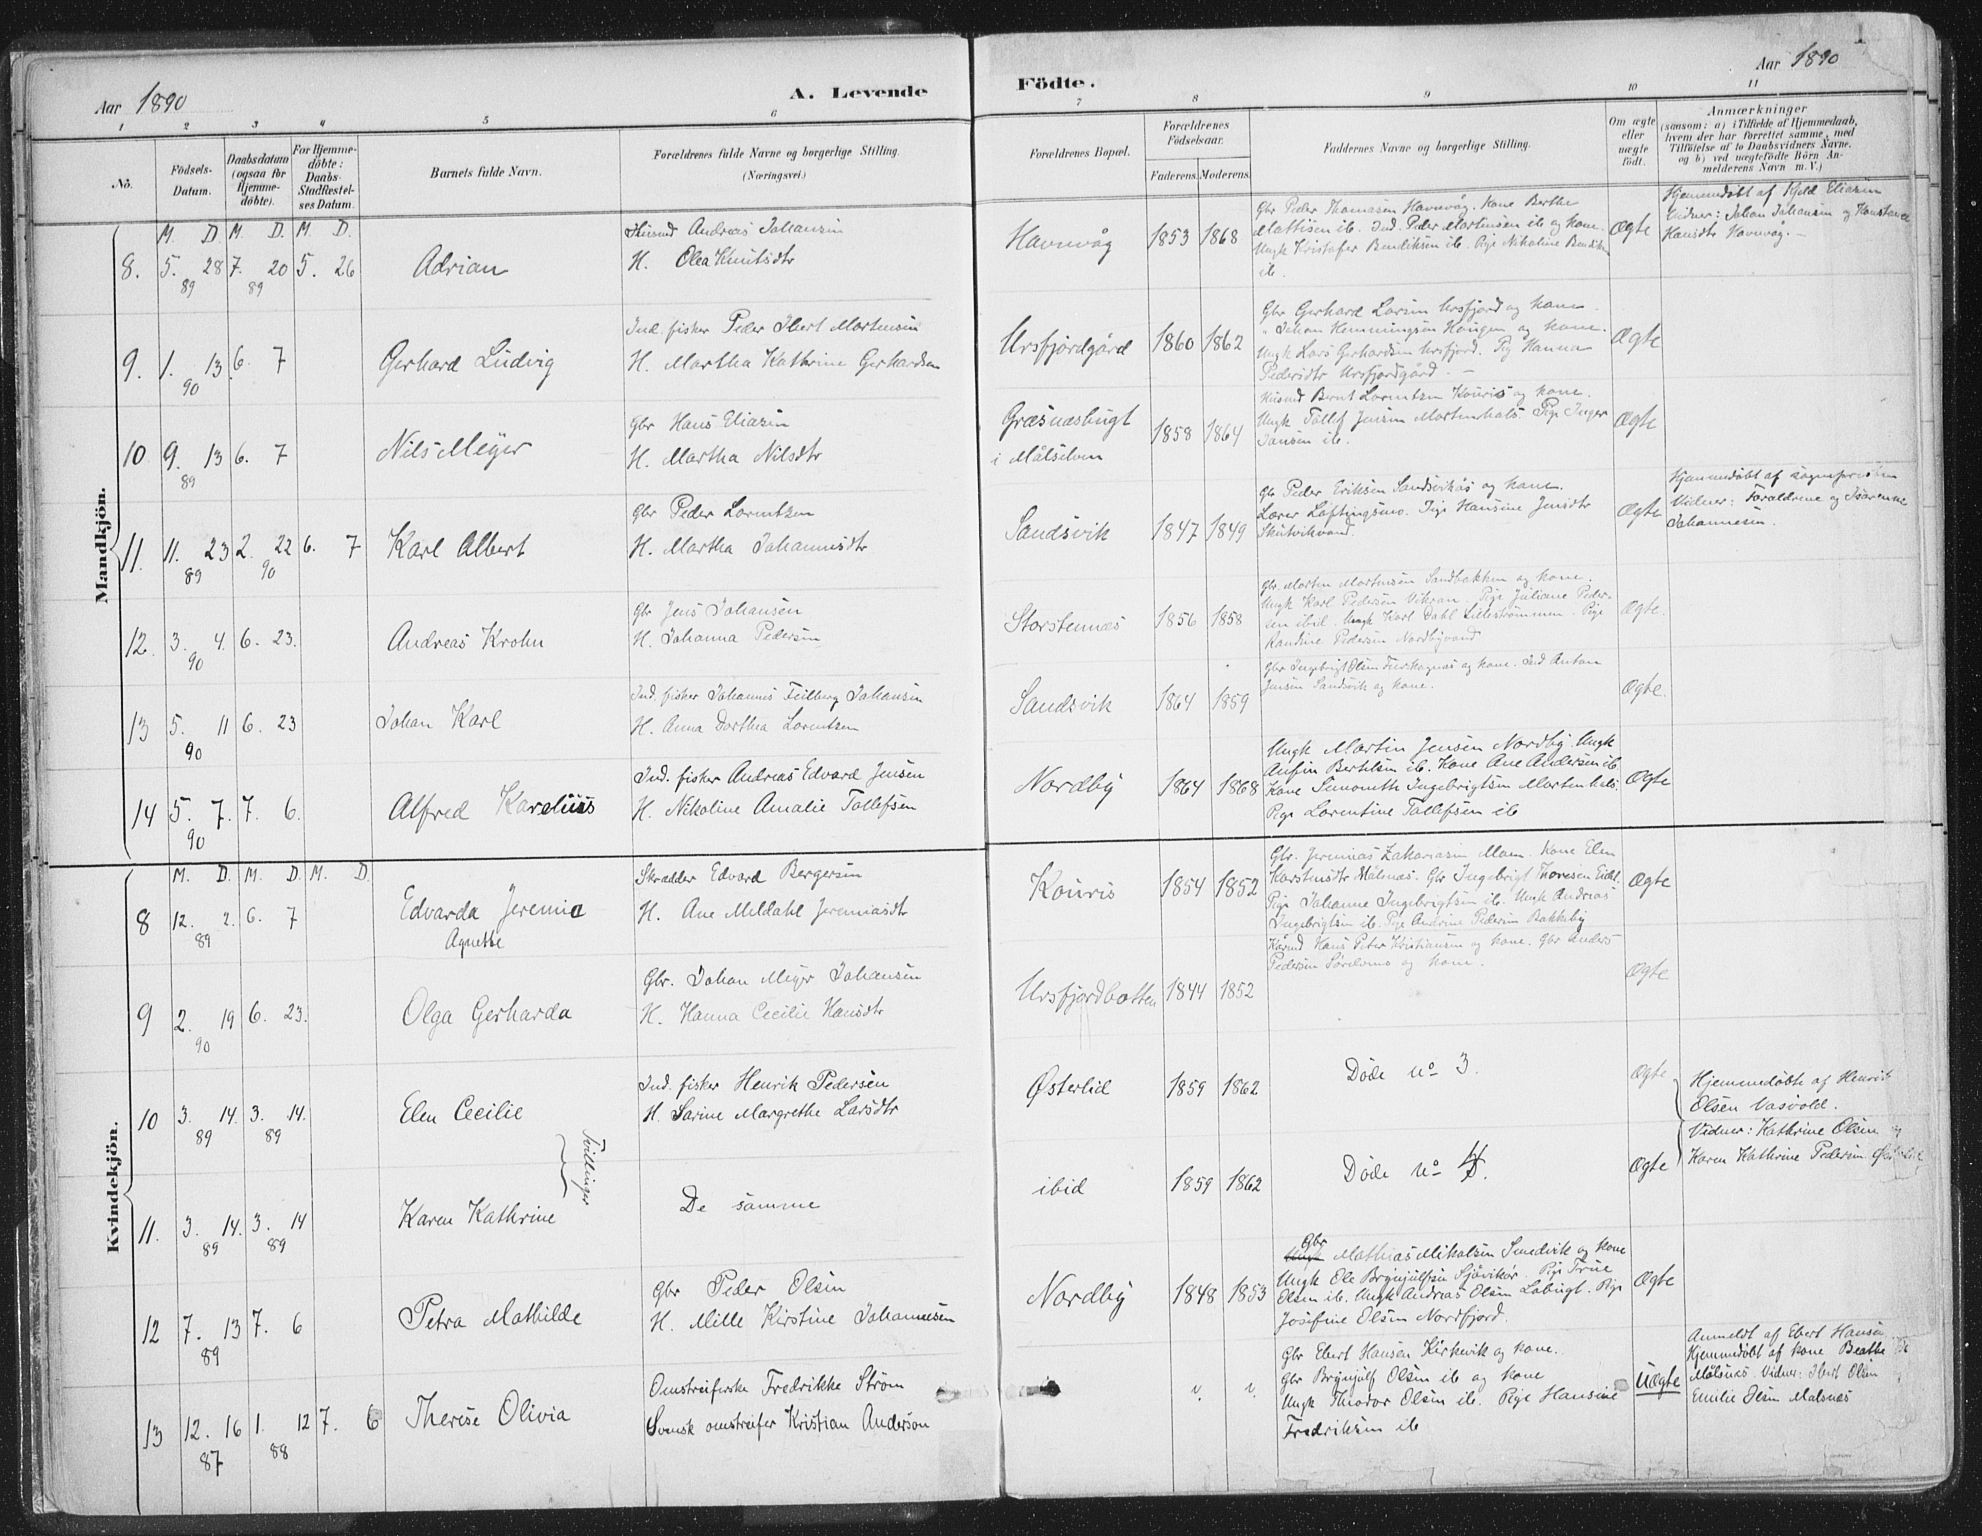 Aar 1890
A. Levende
1 2 3 4 5 6
No.
Födsels-Datum.
Daabsdatum (ogsaa for Hjemme-döbte).
For Hjemme-döbte: Daabs-Stadfæstel-ses Datum.
Barnets fulde Navn.
Forældrenes fulde Navne og borgerlige Stilling.
(Næringsvei.)
Mandkjön.
M. D. M. D. M. D.
Husmd Andreas Johansen
8. 5. 28 7. 20 5. 26 Adrian H. Olea Knutsdtr
89 89
Ind. fisker Peder Ibert Mortensen
9. 1. 13 6. 7 Gerhard Ludvig H. Martha Kathrine Gerhardsen
90
Gbr Hans Eliasen
10 9. 13 6. 7 Nils Meyer H. Martha Nilsdtr
89
Gbr Peder Lorentzen
11. 11. 23 2. 22 6. 7 Karl Albert H. Martha Johannesdtr
89 90
Gbr Jens Johansen
12. 3. 4. 6. 23. Andreas Krohn H. Johanna Pedersen
90
Ind. fisker Johannes Feilberg Johansen
13 5. 11 6. 23 Johan Karl H. Anna Dorthea Lorentzen
90
Ind. fisker Andreas Edvard Jensen
14 5. 7. 7. 6. Alfred Karelius H. Nikoline Amalie Tollefsen
90
Kvindekjön.
M. D. M. D. M. D.
Skrædder Edvard Bergersen
8 12. 2. 6. 7 Edvarda Jeremia H. Ane Meldahl Jeremiasdtr
89 Agnethe
Gbr. Johan Meyer Johansen
9 2. 19 6. 23. Olga Gerharda H. Hanna Cecilie Hansdtr
90
Ind. fisker Henrik Pedersen
10 3. 14. 3. 14. Elen Cecilie H. Sarine Margrethe Larsdtr
89 89
Tvillinger
11. 3. 14. 3. 14 Karen Kathrine De samme
89 89
Gbr Peder Olsen
12 7. 13 7. 6 Petra Mathilde H. Mille Kirstine Johannesen
89
Omstreiferske Fredrikke Strøm
13 12. 16 1. 12 7. 6 Therese Olivia Svensk omstreifer Kristian Anderson
87 88
Födte.
Aar 1890
7 8 9 10 11
Forældrenes Bopæl.
Forældrenes Födselsaar.
Faderens. Moderens.
Faddernes Navne og borgerlige Stilling.
Om ægte eller uægte födt.
Anmærkninger
(saasom: a) i Tilfælde af Hjemmedaab,
hvem der har forrettet samme, med
Tilföielse af to Daabsvidners Navne.
og b) ved uægtefödte Börn An-
melderens Navn m. V.)
Havnvåg 1853 1868 Ægte
Gbr Peder Thomasen Havnvåg. Kone Berthe
Mathisen ib. Ind. Peder Mortensen ib og kone.
Ungk Kristofer Bendiksen ib. Pige Nikoline Bendiksen
ib.
Hjemmedøbt af Kjeld Eliasen
Vidner: Johan Johansen og Konstance
Hansdtr Havnvåg. —
Ursfjordgård 1860 1862 Ægte
Gbr Gerhard Larsen Ursfjord og kone.
" Johan Hemmingsen Haugen og kone.
Ungk Lars Gerhardsen Ursfjord. Pig Hanna
Pedersdtr Ursfjordgård. —
Græsnæsbugt
i Målselven 1858 1864 Ægte
Husmd Bernt Lorentzen Kouris og kone.
Ungk Tollef Jensen Mortenhals. Pige Inger
Jansen ib.
Sandsvik 1847 1849 Ægte
Gbr Peder Eriksen Sandsvikås og kone.
Lærer Loftingsmo. Pige Hansine Jensdtr
Skutvikvand.
Hjemmedøbt af sognepresten
Vidner: Forældrene og
Johannesen.
Storstennæs 1856 1858 Ægte.
Gbr. Morten Mortensen Sandbakken og kone.
Ungk Karl Pedersen Vikran. Pige Juliane Peder-
sen ibid. Ungk Karl Dahl Lillestrømmen. Pige
Randine Pedersen Nordbyvand
Sandsvik 1864 1859 Ægte.
Gbr Ingebrigt Olsen og kone. Ind Anton
Jensen Sandsvik og kone.
Nordby 1864 1868 Ægte
Ungk Martin Jensen Nordby. Ungk
Anfin Bertelsen ib. Kone Ane Andersen ib
Kone Ingebrigtsen Mortenhals.
Pige Lorentine Tollefsen ib
Kouris 1854 1852 Ægte
Gbr. Jeremias Zakariasen Moen. Kone Elen
Karstensdtr Målsnæs. Gbr Ingebrigt Thoresen
Pige Johanne Ingebrigtsen ib. Ungk Andreas
Ingebrigtsen ib. Pige Andrine Pedersen Bakkeby
Ursfjordbotten 1844 1852 Ægte
Hans Peter Kristiansen og kone. Gbr Anders
Pedersen og kone.
Østerlid 1859 1862 Døde No 3. Ægte
Hjemmedøbte af Henrik
Olsen Vasvold.
Vidner: Kathrine Olsen og
Karen Kathrine Pedersen
ibid 1859 1862 Døde No 4. Ægte
Nordby 1848 1853 Ægte
Gbr
Ungk Mathias Mikalsen Smedvik og kone
Ungk Ole Brynjulfsen Sjøvikor. Pige Trine
Olsen ib. Ungk Andreas Olsen Labugt. Pige
Josefine Olsen Nordfjord.
" " Uægte
Gbr Ebert Hansen Kirkevik og kone.
Gbr Brynjulf Olsen ib og kone
Ungk Theodor Olsen ib. Pige Hansine
Fredriksen ib
Anmeldt af Ebert Hansen
Hjemmedøbt af kone Beathe
Målsnes. Vidner: Ibert Olsen
Emilie Olsen Målsnæs